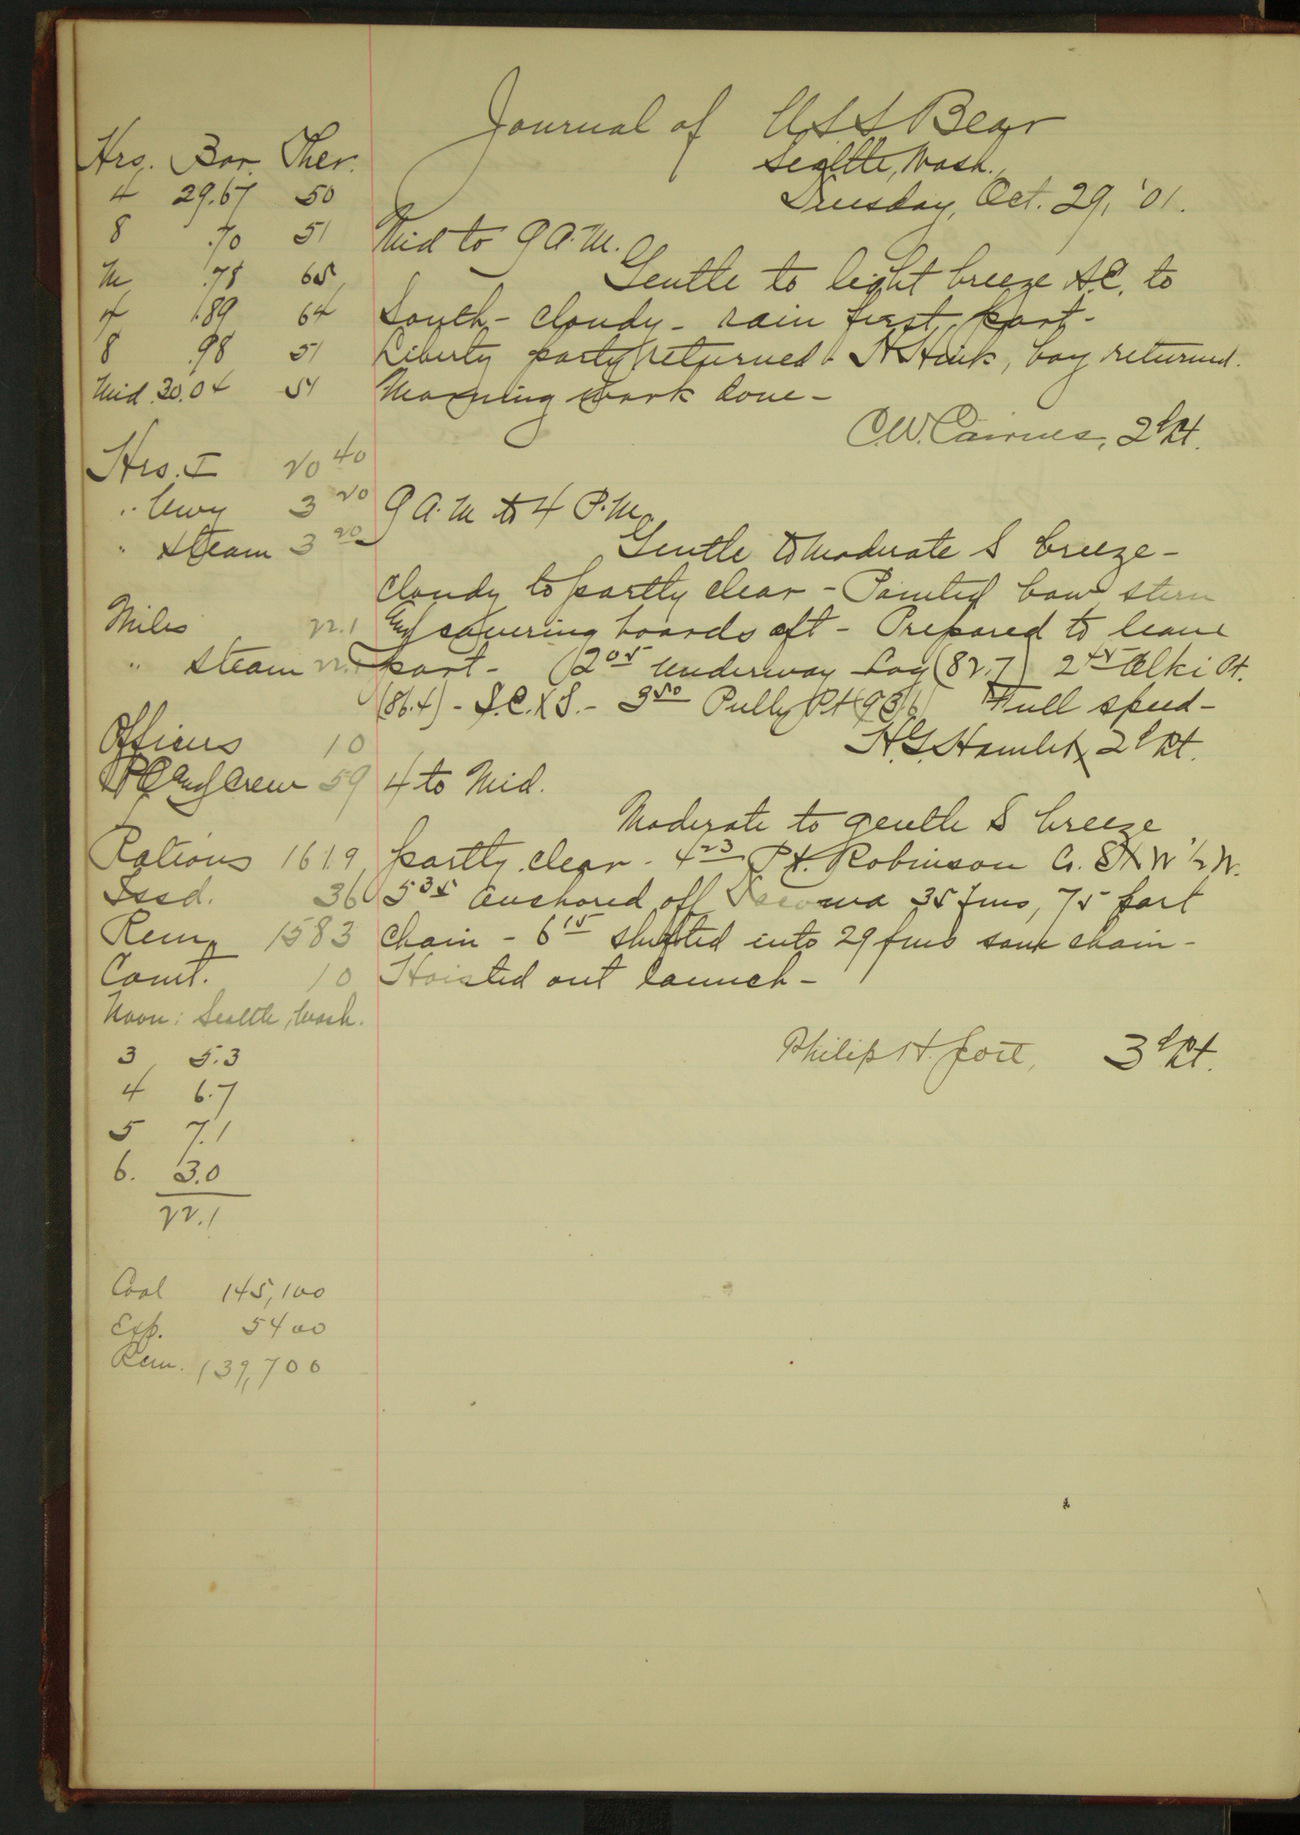 Journal of USS Bear
Seattle, Wash.
Tuesday, Oct. 29, '01.
Hrs. Bar. Ther.
4 29.67 50
8 .70 51
M .78 65
4 .89 64
8 .98 51
Mid 30.04 51
Hrs. I 20 40
" Uwy 3 20
" Steam 3 20
Miles 22.1
" steam 22.1
Officers 10
P.O. and Crew 59
Rations 1619
Issd. 36
Rem. 1583
Comt. 10
Noon: Seattle, Wash.
3 5.3
4 6.7
5 7.1
6. 3.0
22.1
Coal 145,100
Exp. 5400
Rem. 139,700
Mid to 9 A.M.
Gentle to light breeze S.E. to
South - cloudy - rain first part -
Liberty party returned. H Hink, boy returned.
Morning work done -
C.W. Cairnes, 2d Lt.
9 A.M to 4 P.M.
Gentle to moderate S breeze -
cloudy to partly clear - Painted bow, stern
and covering boards aft - Prepared to leave
port - (2 05 underway Log (82.7) 2 45 Alki Pt.
(86.4) - S.E.XS. - 3 50 Pully Pt (93.6) Full speed -
H.G. Hamlet, 2d Lt.
4 to Mid.
Moderate to gentle S breeze
partly clear - 4 23 Pt. Robinson a. SXW 1/2 W.
5 35 Anchored off Tacoma 35 fms, 75 port
chain - 6 15 shifted into 29 fms same chain -
Hoisted out launch -
Philip H. 3d Lt.